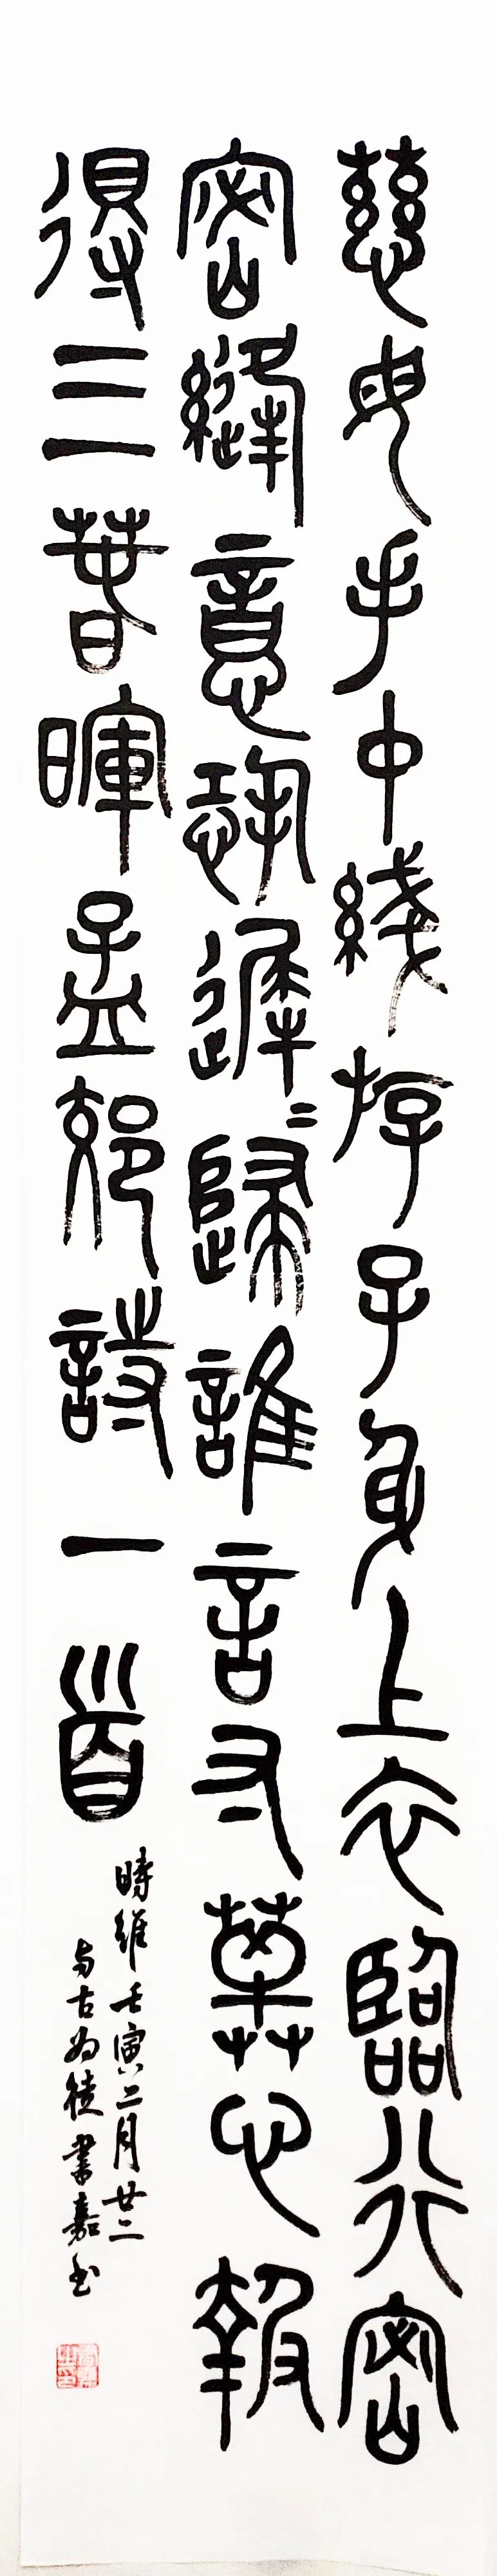 慈母手中綫斿子身上衣臨行密
密縫意恐遲〻歸誰言寸草心報
得三萅暉孟郊詩一首
時維壬寅二月廿二
与古为徒書嘉